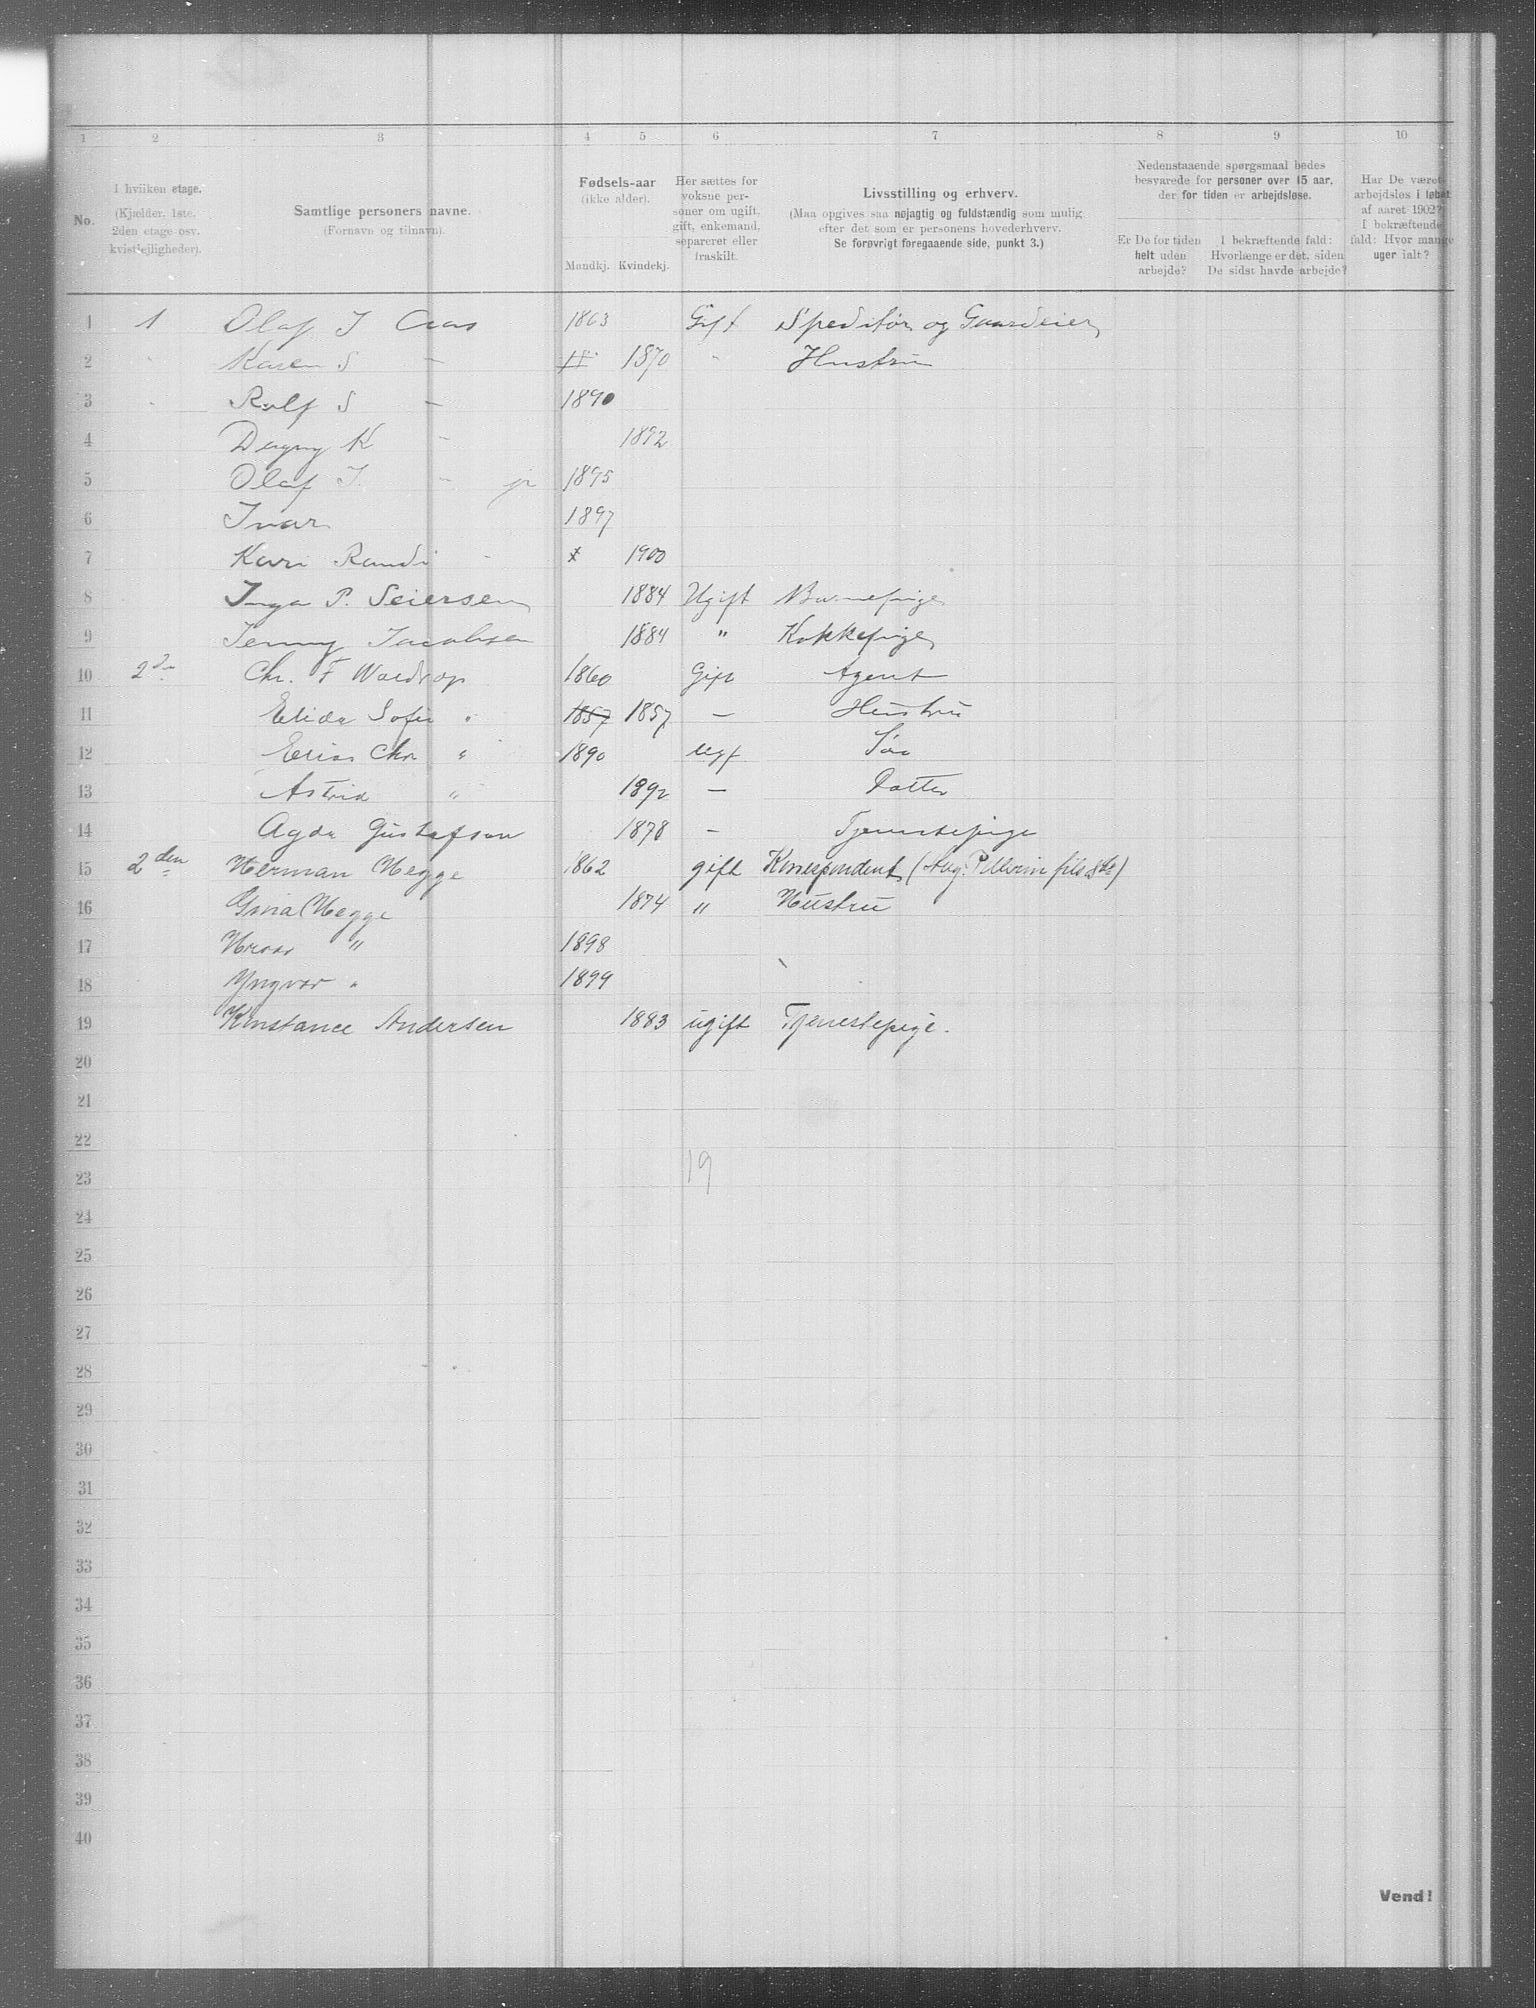 1 2 3 4 5 6 7 8 9 10
No.
I hvilken etage.
(Kjælder, 1ste,
2den etage osv.
kvistlejligheder).
Samtlige personers navne.
(Fornavn og tilnavn).
Fødsels-aar
(ikke alder).
Mandkj. Kvindekj.
Her sættes for
voksne per-
soner om ugift,
gift, enkemand,
separeret eller
fraskilt.
Livsstilling og erhverv.
(Maa opgives saa nøjagtig og fuldstændig som mulig
efter det som er personens hovederhverv.
Se forøvrigt foregaaende side, punkt 3.)
Nedenstaaende spørgsmaal bedes
besvarede for personer over 15 aar,
der for tiden er arbejdsløse.
Er De for tiden
helt uden
arbejde?
I bekræftende fald:
Hvorlænge er det, siden
De sidst havde arbejde?
Har De været
arbejdsløs i løbet
af aaret 1902?
I bekræftende
fald: Hvor mange
uger ialt?
1 1 Olaf J 1863 Gift Speditør og Gaardeier
2 Karen S — 1870 " Hustru
3 Rolf S — 1890
4 Dagny K - 1892
5 Olaf J. - jr 1895
6 Ivar 1897
7 Kari Randi - 1900
8 Inga P. Seiersen 1884 Ugift Barnepige
9 Jenny Jacobsen 1884 " Kokkepige
10 2den Chr. F Wardrop 1860 Gift Agent
11 Elida Sofie " 1857 1857 — Hustru
12 Chr " 1890 ugf Søn
13 Astrid " 1892 — Datter
14 Agda Gustafson 1878 — Tjenestepige
15 2den Herman Hegge 1862 gift Korrespondent (Aug. Pellerin fils & Co)
16 Gina Hegge 1874 " Hustru
17 Hroar " 1898
18 Yngvar " 1899
19 Konstance Andersen 1883 ugift Tjenestepige.
20
21
22
23 19
24
25
26
27
28
29
30
31
32
33
34
35
36
37
38
39
40
Vend!